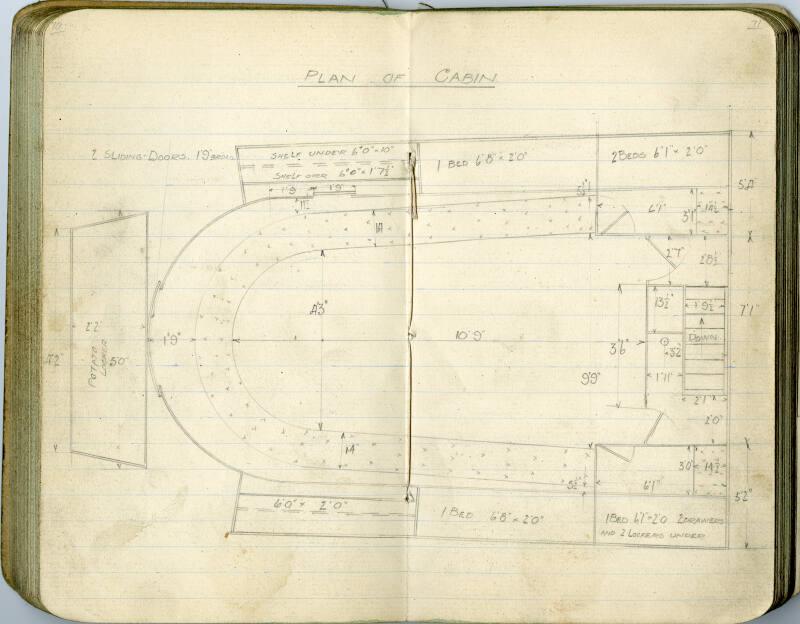 70
71
PLAN OF CABIN
2 SLIDING-DOORS. 1'9" BROAD
SHELF UNDER 6'0" × 10"
SHELF OVER 6'0" × 1'7½"
1 BED 6'8" × 2'0"
2 BEDS 6'1" × 2'0"
5'2"
1'9"
1'9"
11½"
14"
5½"
6'1"
3'1"
14½"
2'7"
2'8½"
4'3"
10'9"
1'9"
2'2"
POTATO
LOCKER
5'0"
4'2"
13½"
1'9½"
7'1"
DOWN
3'6"
9'9"
1'11"
2'1"
2'0"
14"
5½"
6'1"
3'0"
14½"
5'2"
6'0" × 2'0"
1 BED 6'8" × 2'0"
1 BED 6'1" × 2'0 2 DRAWERS
AND 2 LOCKERS UNDER